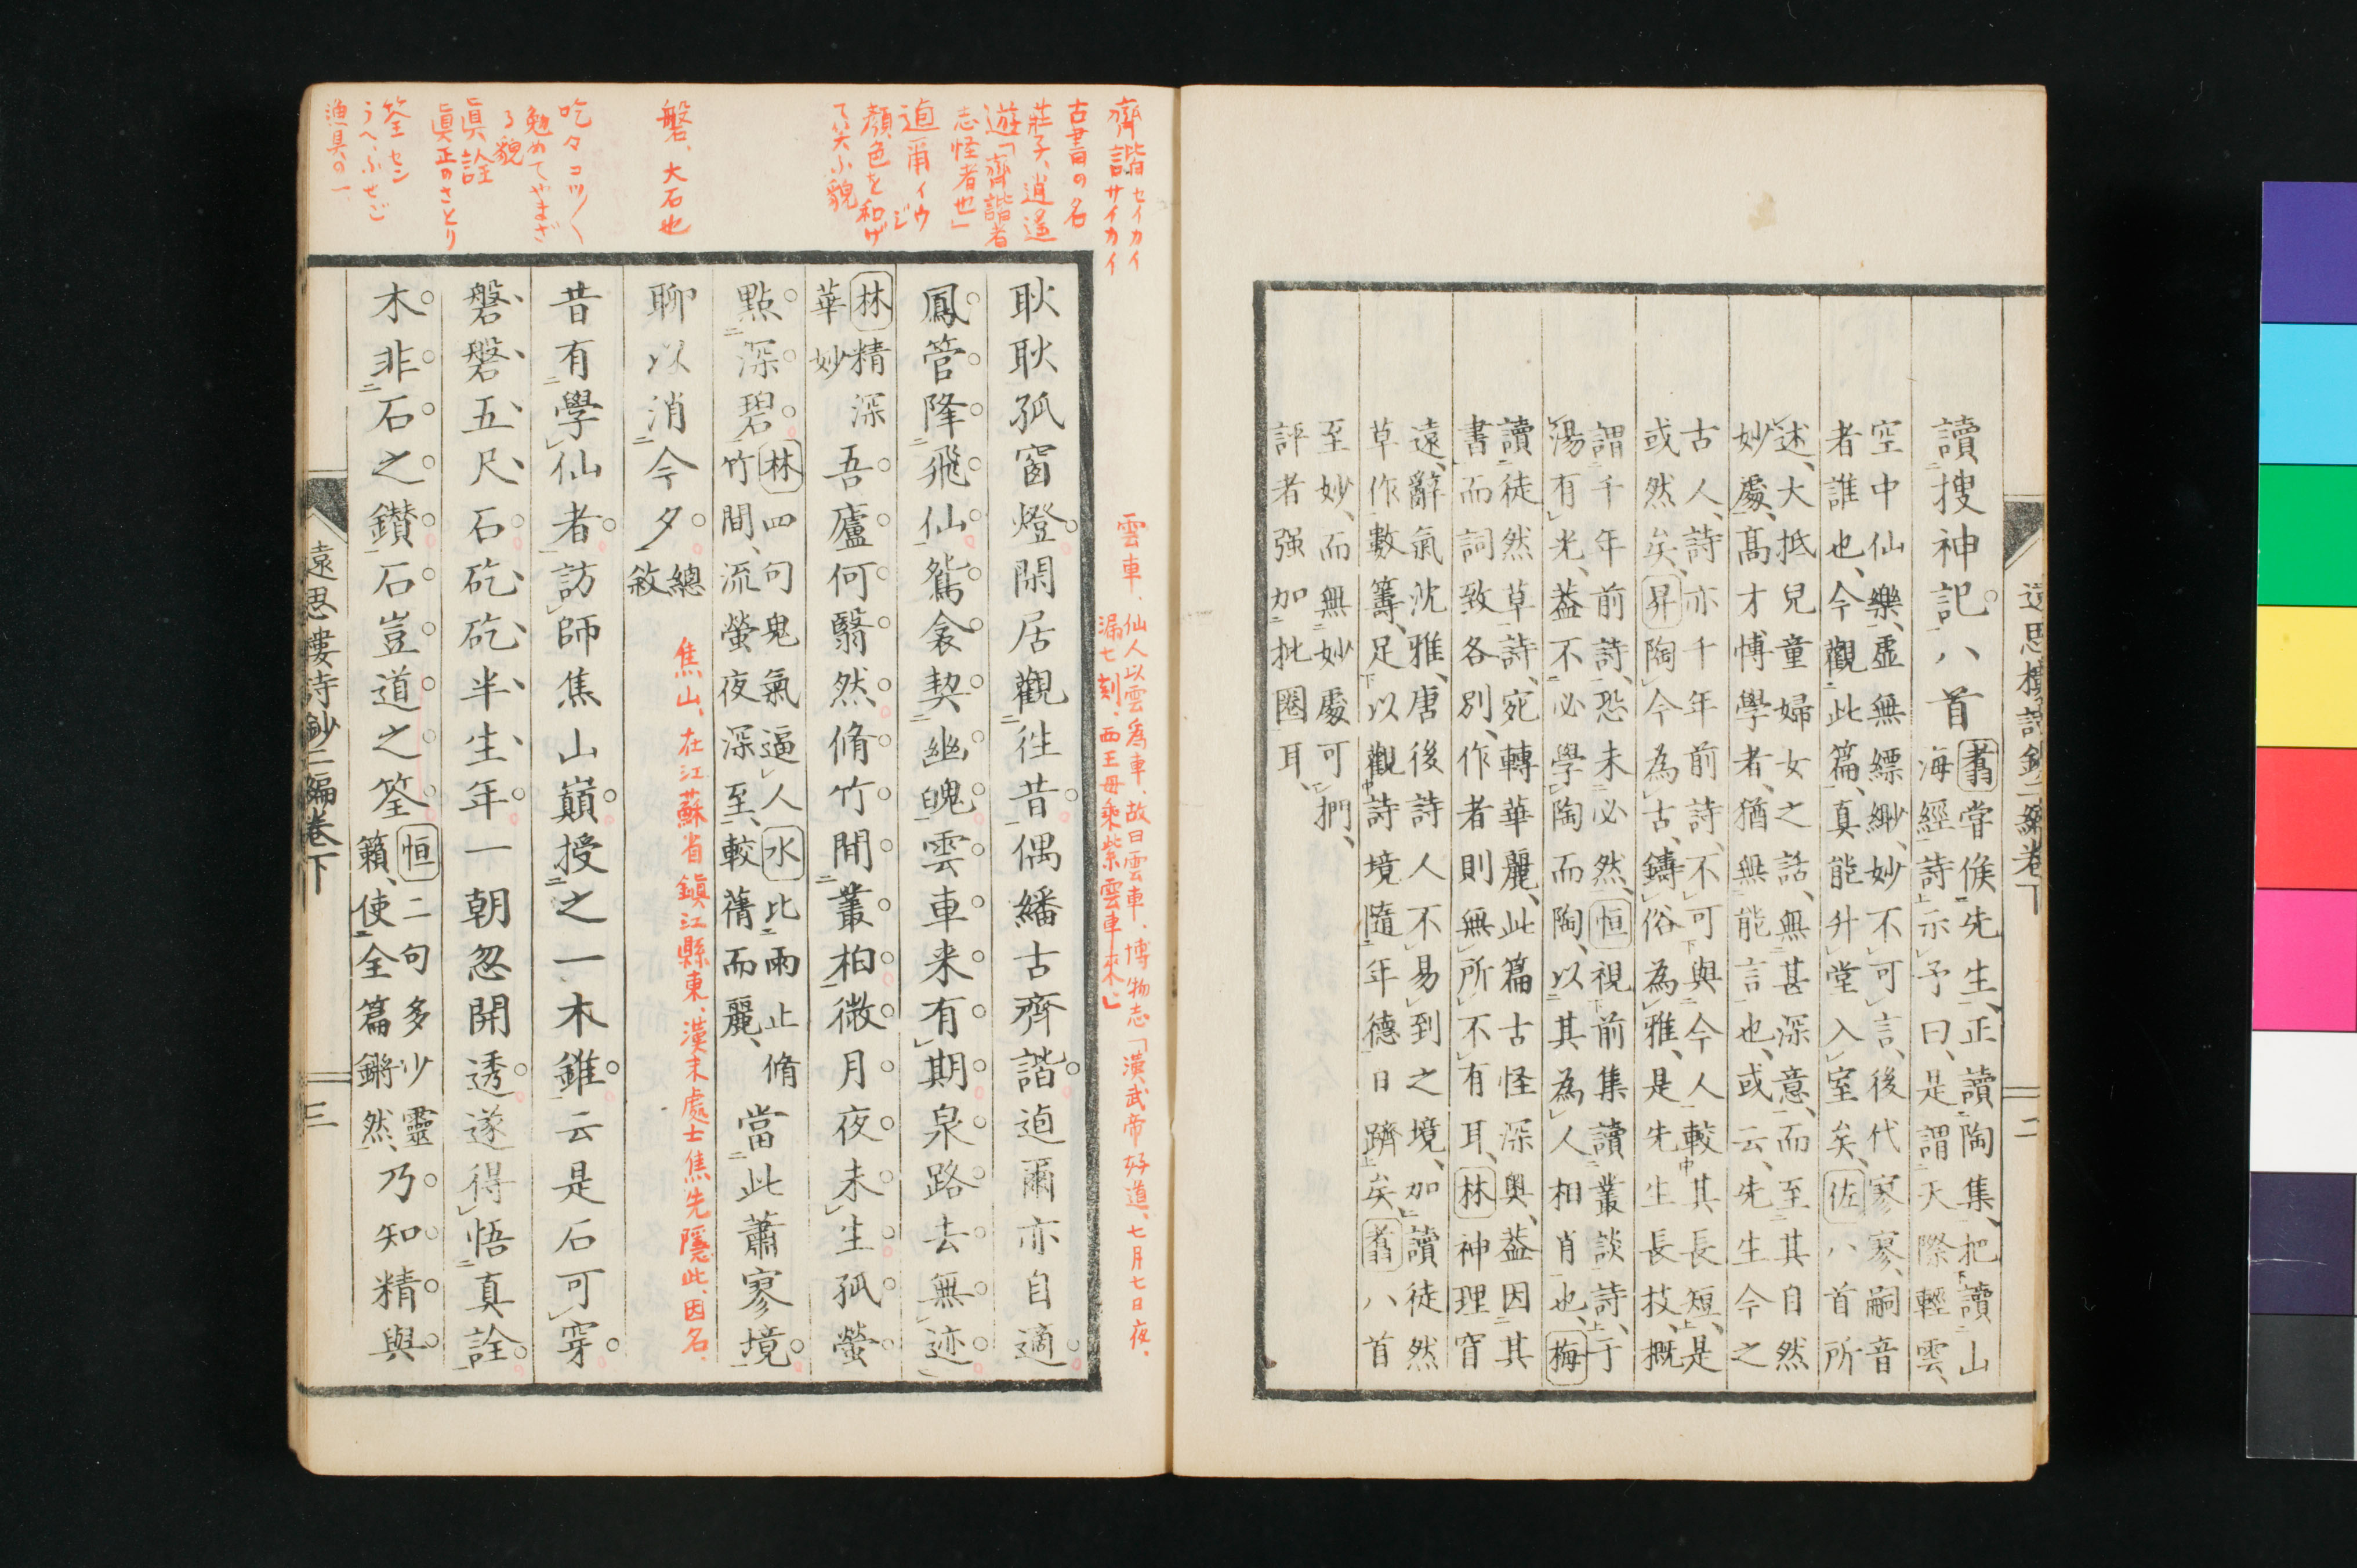 讀搜神記八首
耆嘗候先生、正讀陶集、把讀山
海經詩示予曰、是謂天際輕雲、
空中仙樂、虛無縹緲、妙不可言、後代寥寥、嗣音
者誰也、今觀此篇、真能升堂入室矣、佐八首所
述、大抵兒童婦女之話、無甚深意、而至其自然
妙處、高才博學者、猶無能言也、或云、先生今之
古人、詩亦千年前詩、不可與今人較其長短、是
或然矣、昇陶今為古、鑄俗為雅、是先生長技、概
謂千年前詩、恐未必然、恒視前集讀叢談詩、于
湯有光、蓋不必學陶而陶、以其為人相肖也、梅
讀徒然草詩、宛轉華麗、此篇古怪深奧、蓋因其
書而詞致各別、作者則無所不有耳、林神理窅
遠、辭氣沈雅、唐後詩人不易到之境、加讀徒然
草作數籌、足以觀詩境隨年德日躋矣耆八首
至妙、而無妙處可捫、
評者强加批圈耳、
遠思樓詩鈔二編卷下 二
齊諧セイカイ
サイカイ
古書の名
莊子、逍遙
遊「齊諧者
志怪者也」
逌爾イウジ
顏色を和げ
て笑ふ貌
磐、大石也
吃々コツ〱
勉めてやまざ
る貌
眞詮
眞正のさとり
筌セン
うへ、ふせご
漁具の一
雲車、仙人以雲爲車、故曰雲車、博物志「漢武帝好道、七月七日夜、
漏七刻、西王母乘紫雲車來」
耿耿孤窗燈閑居觀往昔偶繙古齊諧逌爾亦自適
鳳管降飛仙鴛衾契幽魄雲車来有期泉路去無迹
林精深
華妙
吾廬何翳然脩竹間叢柏微月夜未生孤螢
點深碧
林四句鬼氣逼人水比雨止脩
竹間、流螢夜深至、較蒨而麗、
當此蕭寥境
聊以消今夕
總
敘
焦山、在江蘇省鎮江縣東、漢末處士焦先隱此、因名、
昔有學仙者訪師焦山巔授之一木錐云是石可穿
磐磐五尺石矻矻半生年一朝忽開透遂得悟真詮
木非石之鑚石豈道之筌
恒二句多少靈
籟、使全篇鏘然、
乃知精與
遠思樓詩鈔二編卷下 三